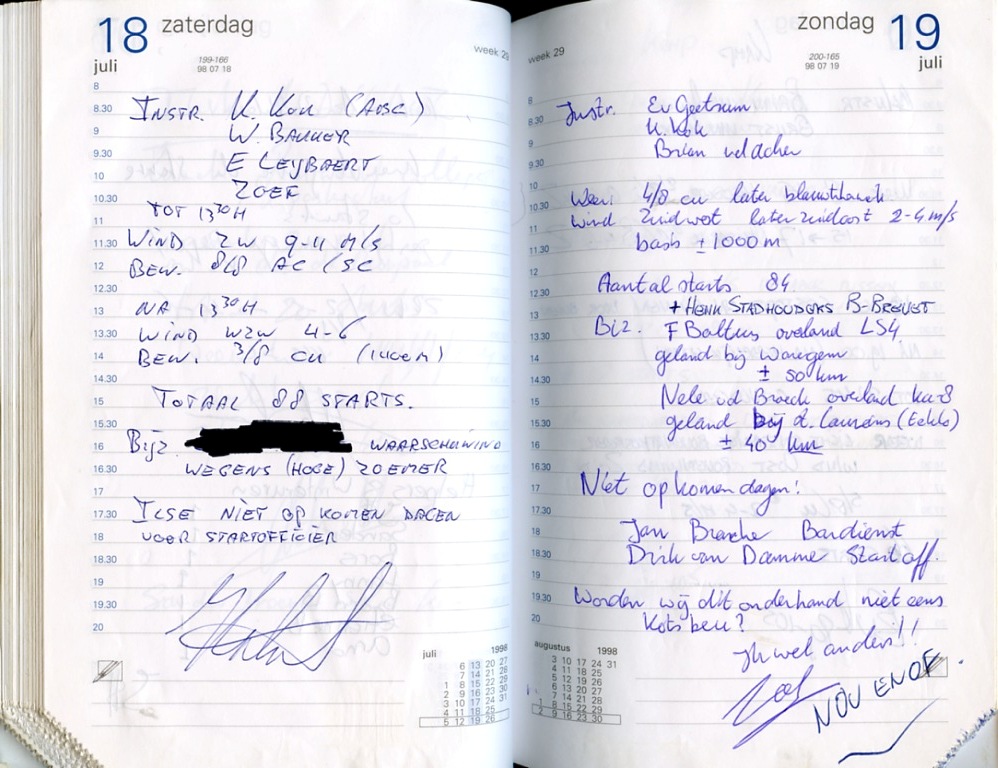 18 zaterdag
juli
199-166
98 07 18
week 29
8
8.30
9
9.30
10
10.30
11
11.30
12
12.30
13
13.30
14
14.30
15
15.30
16
16.30
17
17.30
18
18.30
19
19.30
20
INSTR. K. KOK (AOSC)
W. BAKKER
E LEYBAERT
ZOEF
TOT 13³⁰H
WIND ZW 9-11 M/S
BEW. 8/8 AC / SC
NA 13³⁰H
WIND WZW 4-6
BEW. 3/8 CU
TOTAAL 88 STARTS.
BIJZ. WAARSCHUWING
WEGENS (HOGE) ZOEMER
ILSE NIET OP KOMEN DAGEN
VOOR STARTOFFICIER
juli 1998
6 13 20 27
7 14 21 28
1 8 15 22 29
2 9 16 23 30
3 10 17 24 31
4 11 18 25
5 12 19 26
zondag 19
juli
200-165
98 07 19
week 29
8
8.30
9
9.30
10
10.30
11
11.30
12
12.30
13
13.30
14
14.30
15
15.30
16
16.30
17
17.30
18
18.30
19
19.30
20
Instr. Ev Geetsum
K. Kok
Brian
Weer: 4/8 cu later
Wind Zuidwest later zuidoost 2-4 m/s
basis ± 1000 m
Aantal starts 84
+ HENK STADHOUDERS B-BREVET
Biz. F Baltus overland LS4
geland bij Waregem
± 50 km
Nele vd Broeck overland ka8
geland bij st. Laureins (Eeklo)
± 40 km
Niet op komen dagen!
Jan Bardienst
Dirk van Damme Start off.
Worden wij dit onderhand niet eens
kots beu?
Ik wel anders!!
NOU ENOF
augustus 1998
3 10 17 24 31
4 11 18 25
5 12 19 26
6 13 20 27
7 14 21 28
1 8 15 22 29
2 9 16 23 30